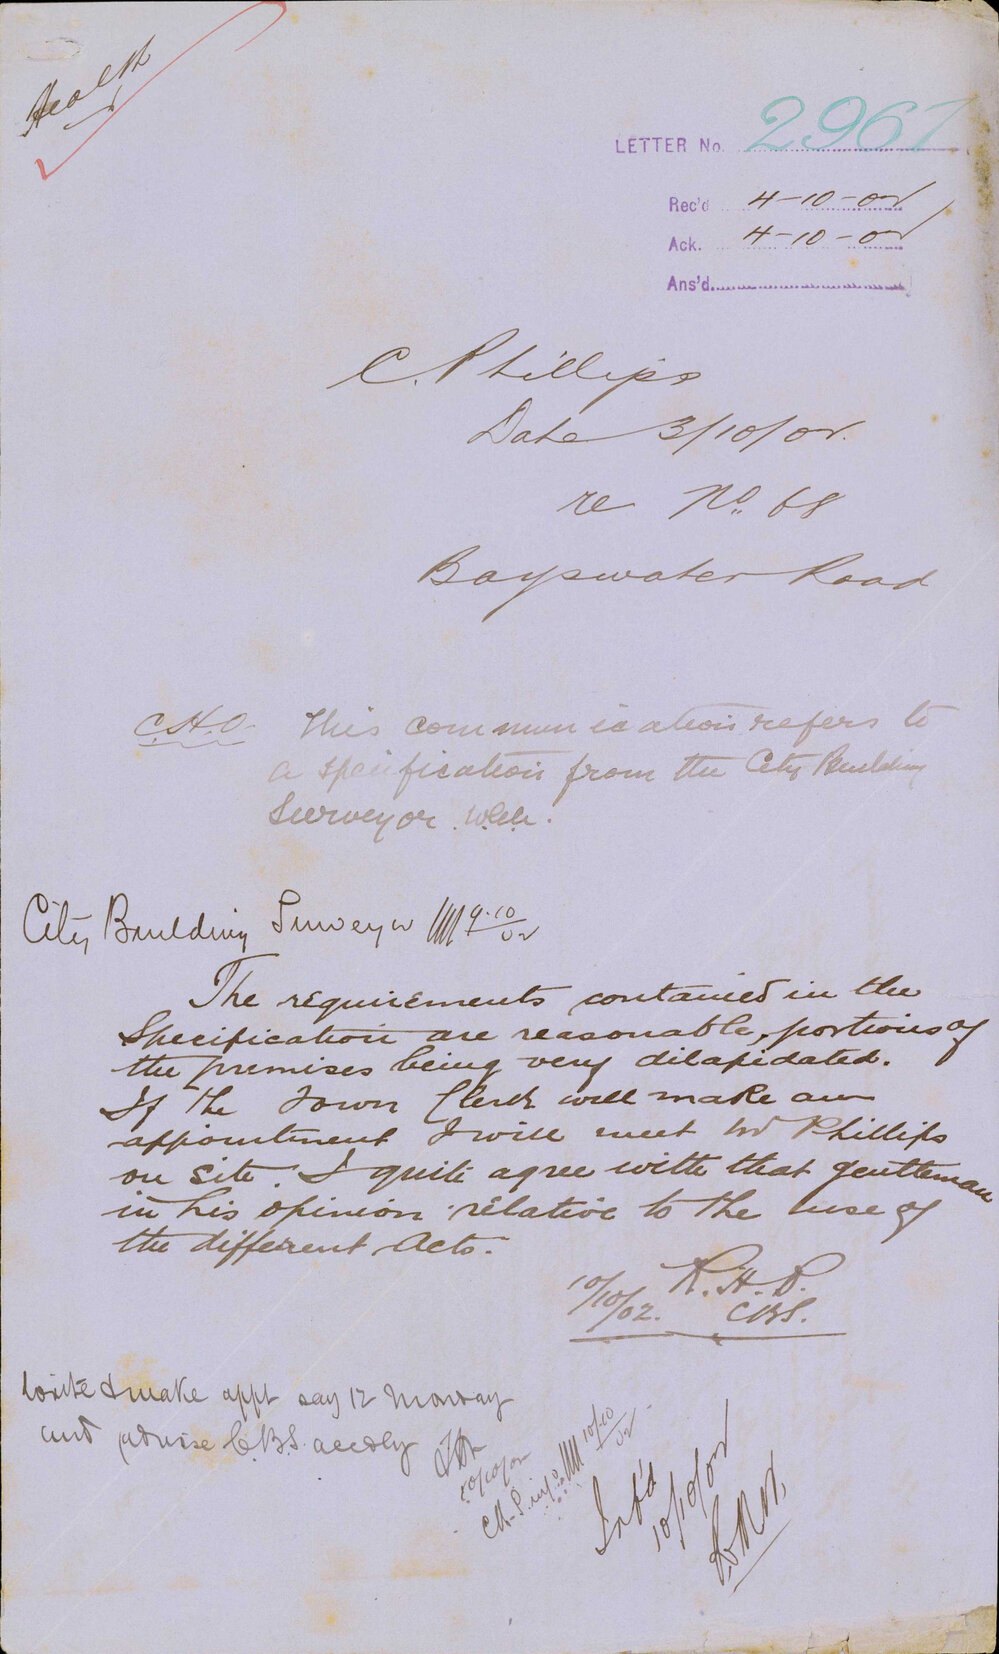 Health
LETTER No. 2967
Rec'd 4-10-02
Ack. 4-10-02
Ans'd.
C. Phillips
Date 3/10/02.
re No. 68
Bayswater Road
C.H.O. This communication refers to
a specification from the City Building
Surveyor.
City Building Surveyor 9.10/02
The requirements contained in the
Specification are reasonable, portions of
the premises being very dilapidated.
If the Town Clerk will make an
appointment I will meet Mr Phillips
on site. I quite agree with that gentleman
in his opinion relative to the use of
the different Acts.
10/10/02. R.H.B.
CBS.
Write & make appt say 12 Monday
and advise C.B.S. accdly
10/10/02
10/10/02
Int'd
10/10/02